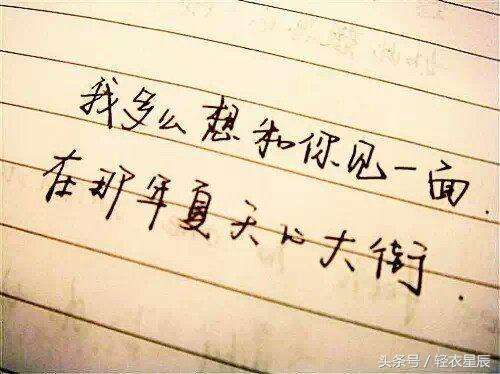 我多么想和你见一面.
在那年夏天的大街.
头条号/轻衣星辰